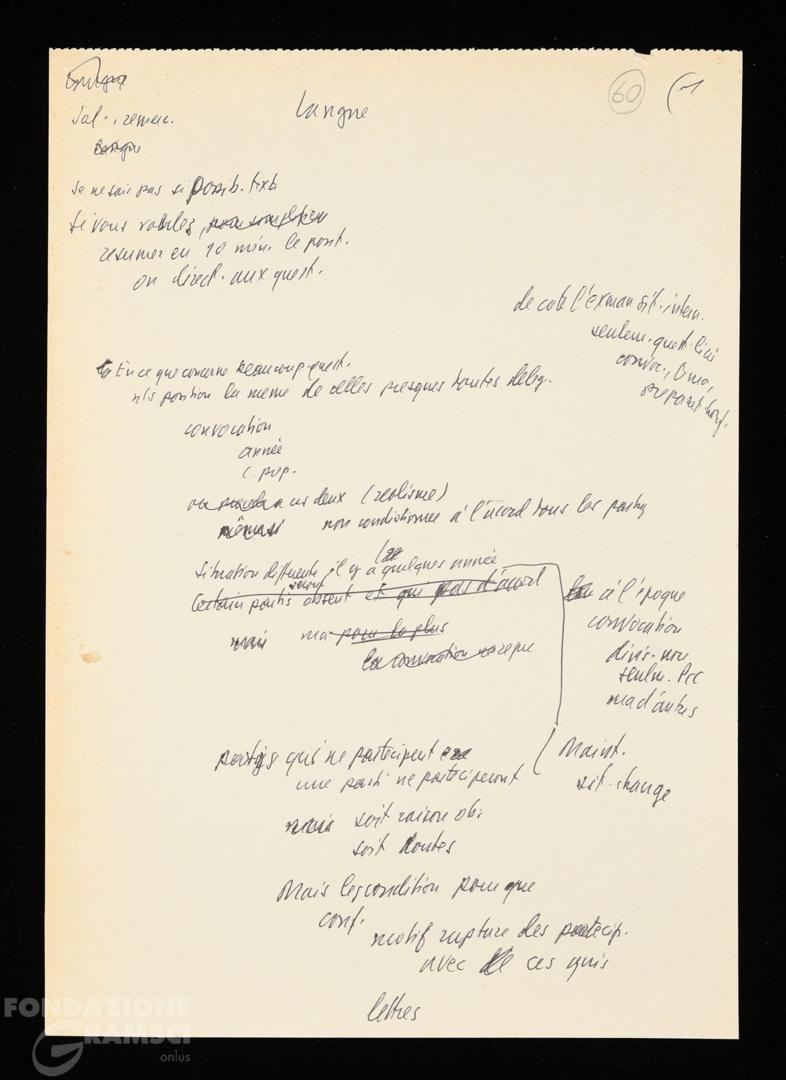 Langue
60
(1
Sal. remerc.
Langue
Je ne sais pas si possib. texte
Si vous voulez,
resumer en 10 min. le posit.
ou direct. aux quest.
de coté l'exman sit. intern.
seulem. quest. liés
convoc.,
preparat. conf.
En ce que concerne beaucoup quest.
n/s position la meme de celles presques toutes deleg.
convocation
année
c. prep.
deux (realisme)
non conditionnée à l'accord tous les partys
Situation differente il y a quelques année
Certain partis absent et qui pas d'accord
mais ma pour la plus
la convocation
à l'époque
convocation
divis. non
seulm. Pcc
ma d'autres
partys qui ne partecipent
une parti ne parteciperont
Maint.
sit. change
mais soit raison ob.
soit doutes
Mais les condition pour que
conf.
motif rupture des partecip.
avec ces quis
lettres
FONDAZIONE
GRAMSCI
onlus